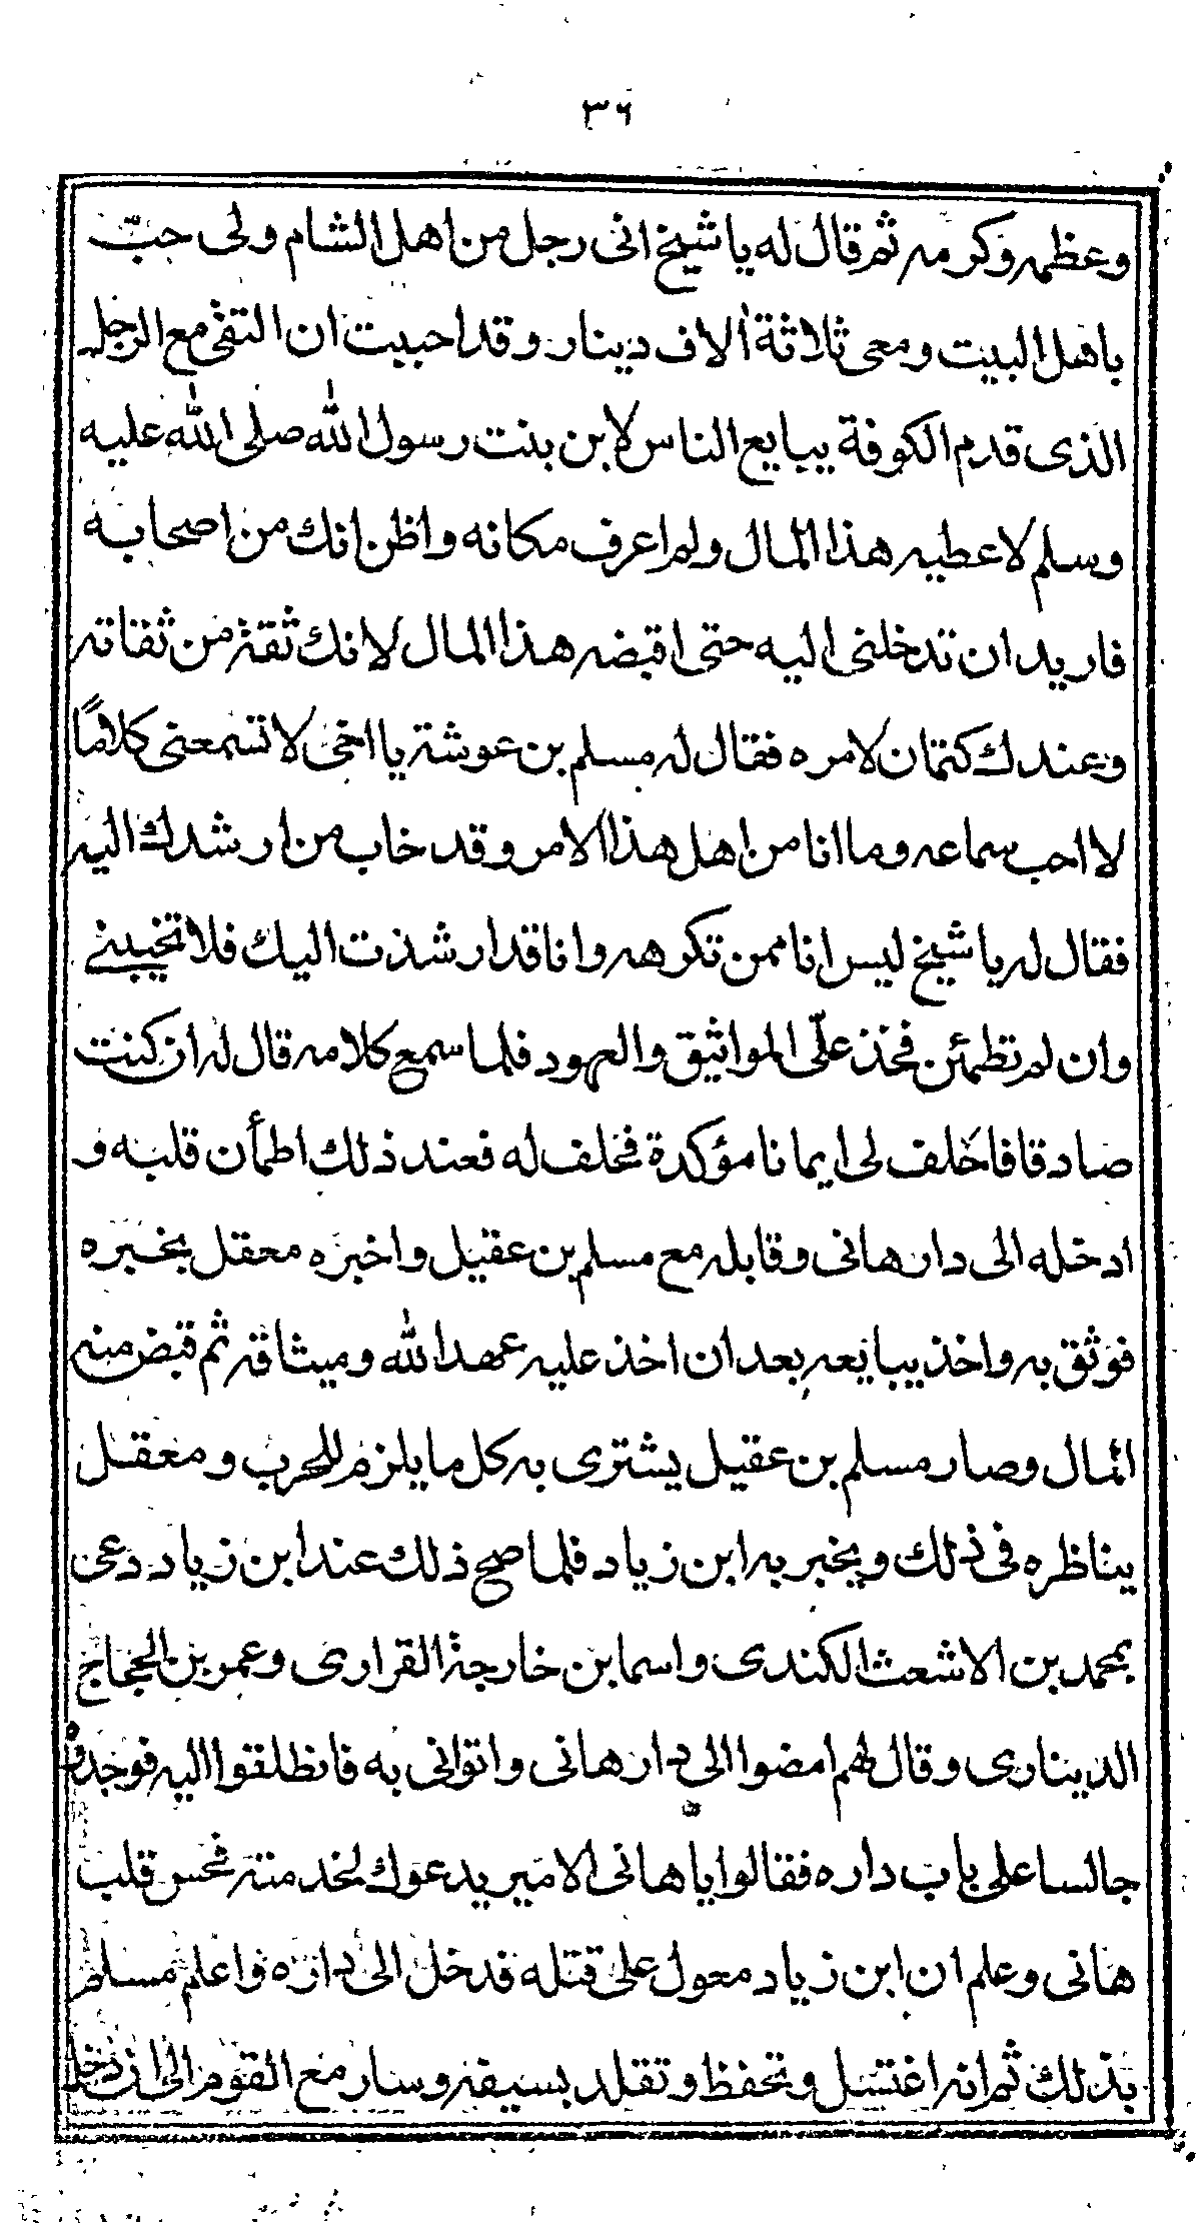 ٣٦
وعظمه وكرمه ثم قال له يا شيخ انى رجل من اهل الشام ولى حبّ
باهل البيت ومعى ثلاثة ألاف دينار وقد احببت ان التقى مع الرجل
الذى قدم الكوفة يبايع الناس لابن بنت رسول الله صلى الله عليه
وسلم لاعطيه هذا المال ولم اعرف مكانه واظن انك من اصحابه
فاريد ان تدخلنى اليه حتى اقبضه هذا المال لانك ثقة من ثقاته
وعندك كتمان لامره فقال له مسلم بن عوشة يا اخى لا تسمعنى كلامًا
لا احب سماعه وما انا من اهل هذا الامر وقد خاب من ارشدك اليه
فقال له يا شيخ ليس انا ممن تكرهه وانا قد ارشذت اليك فلا تخيبنے
وان لم تطمئن فخذ علّى المواثيق والعهود فلما سمع كلامه قال له ان كنت
صادقا فاخلف لى ايمانا مؤكدة فخلف له فعند ذلك اطمأن قلبه و
ادخله الى دار هانى وقابله مع مسلم بن عقيل واخبره معقل بخبره
فوثق به واخذ يبايعه بعد ان اخذ عليه عهد الله وميثاقه ثم قبض منه
المال وصار مسلم بن عقيل يشترى به كل ما يلزم للحرب ومعقل
يناظره فى ذلك ويخبر به ابن زياد فلما صح ذلك عند ابن زياد دعى
بمحمد بن الاشعث الكندى واسما بن خارجة القرارى وعمر بن الحجاج
الدينارى وقال لهم امضوا الى دار هانى واتوانى به فانطلقوا اليه فوجدوه
جالسا على باب داره فقالوا يا هانى الامير يدعوك لخدمته فحس قلب
هانى وعلم ان ابن زياد معول على قتله فدخل الى داره واعلم مسلم
بذلك ثم انه اغتسل وتحفظ وتقلد بسيفه وسار مع القوم الى ان دخل